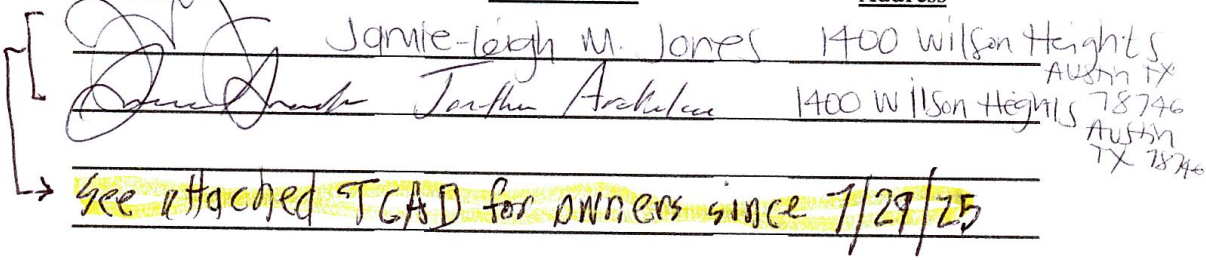 Address
Jamie-Leigh M. Jones 1400 Wilson Heights
Austin TX
78746
1400 Wilson Heights
Austin
TX 78746
See attached TCAD for owners since 7/29/25